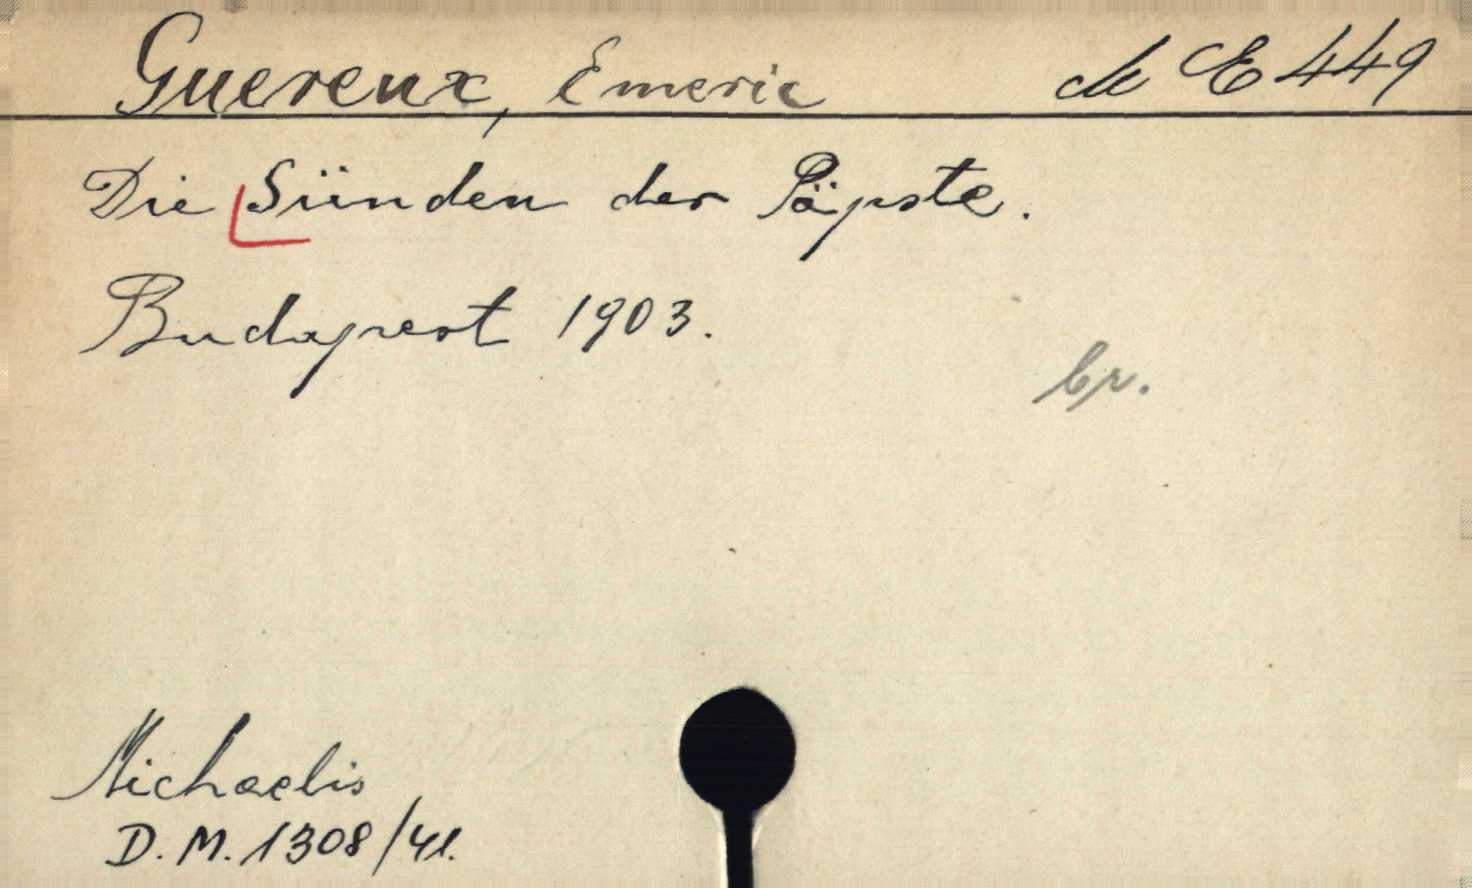 Guereux, Emeric de E 449
Die Sünden der Päpste.
Budapest 1903.
br.
Michaelis
D. M. 1308/41.